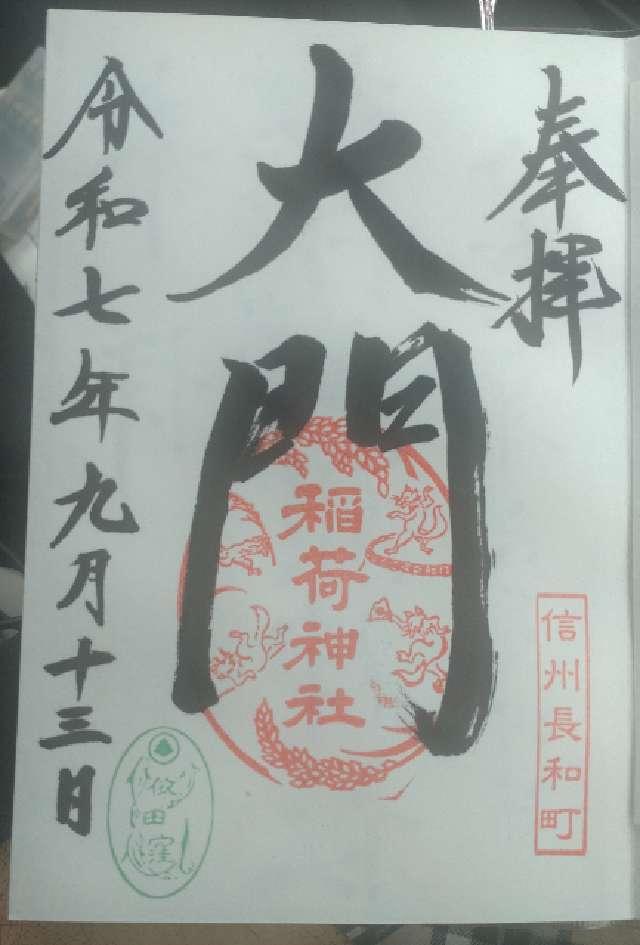 奉拝
信州長和町
大門
稲荷神社
令和七年九月十三日
田窪